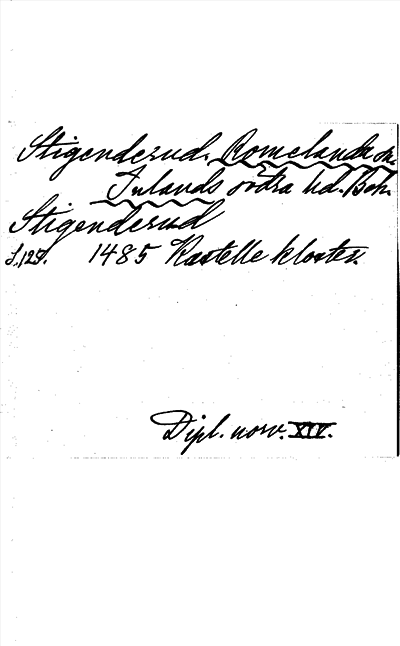 Stigenderud. Romelanda sn.
Inlands södra hd. Boh.
Stigenderud
s. 125. 1485 Kastelle kloster.
Dipl. norv. XIV.